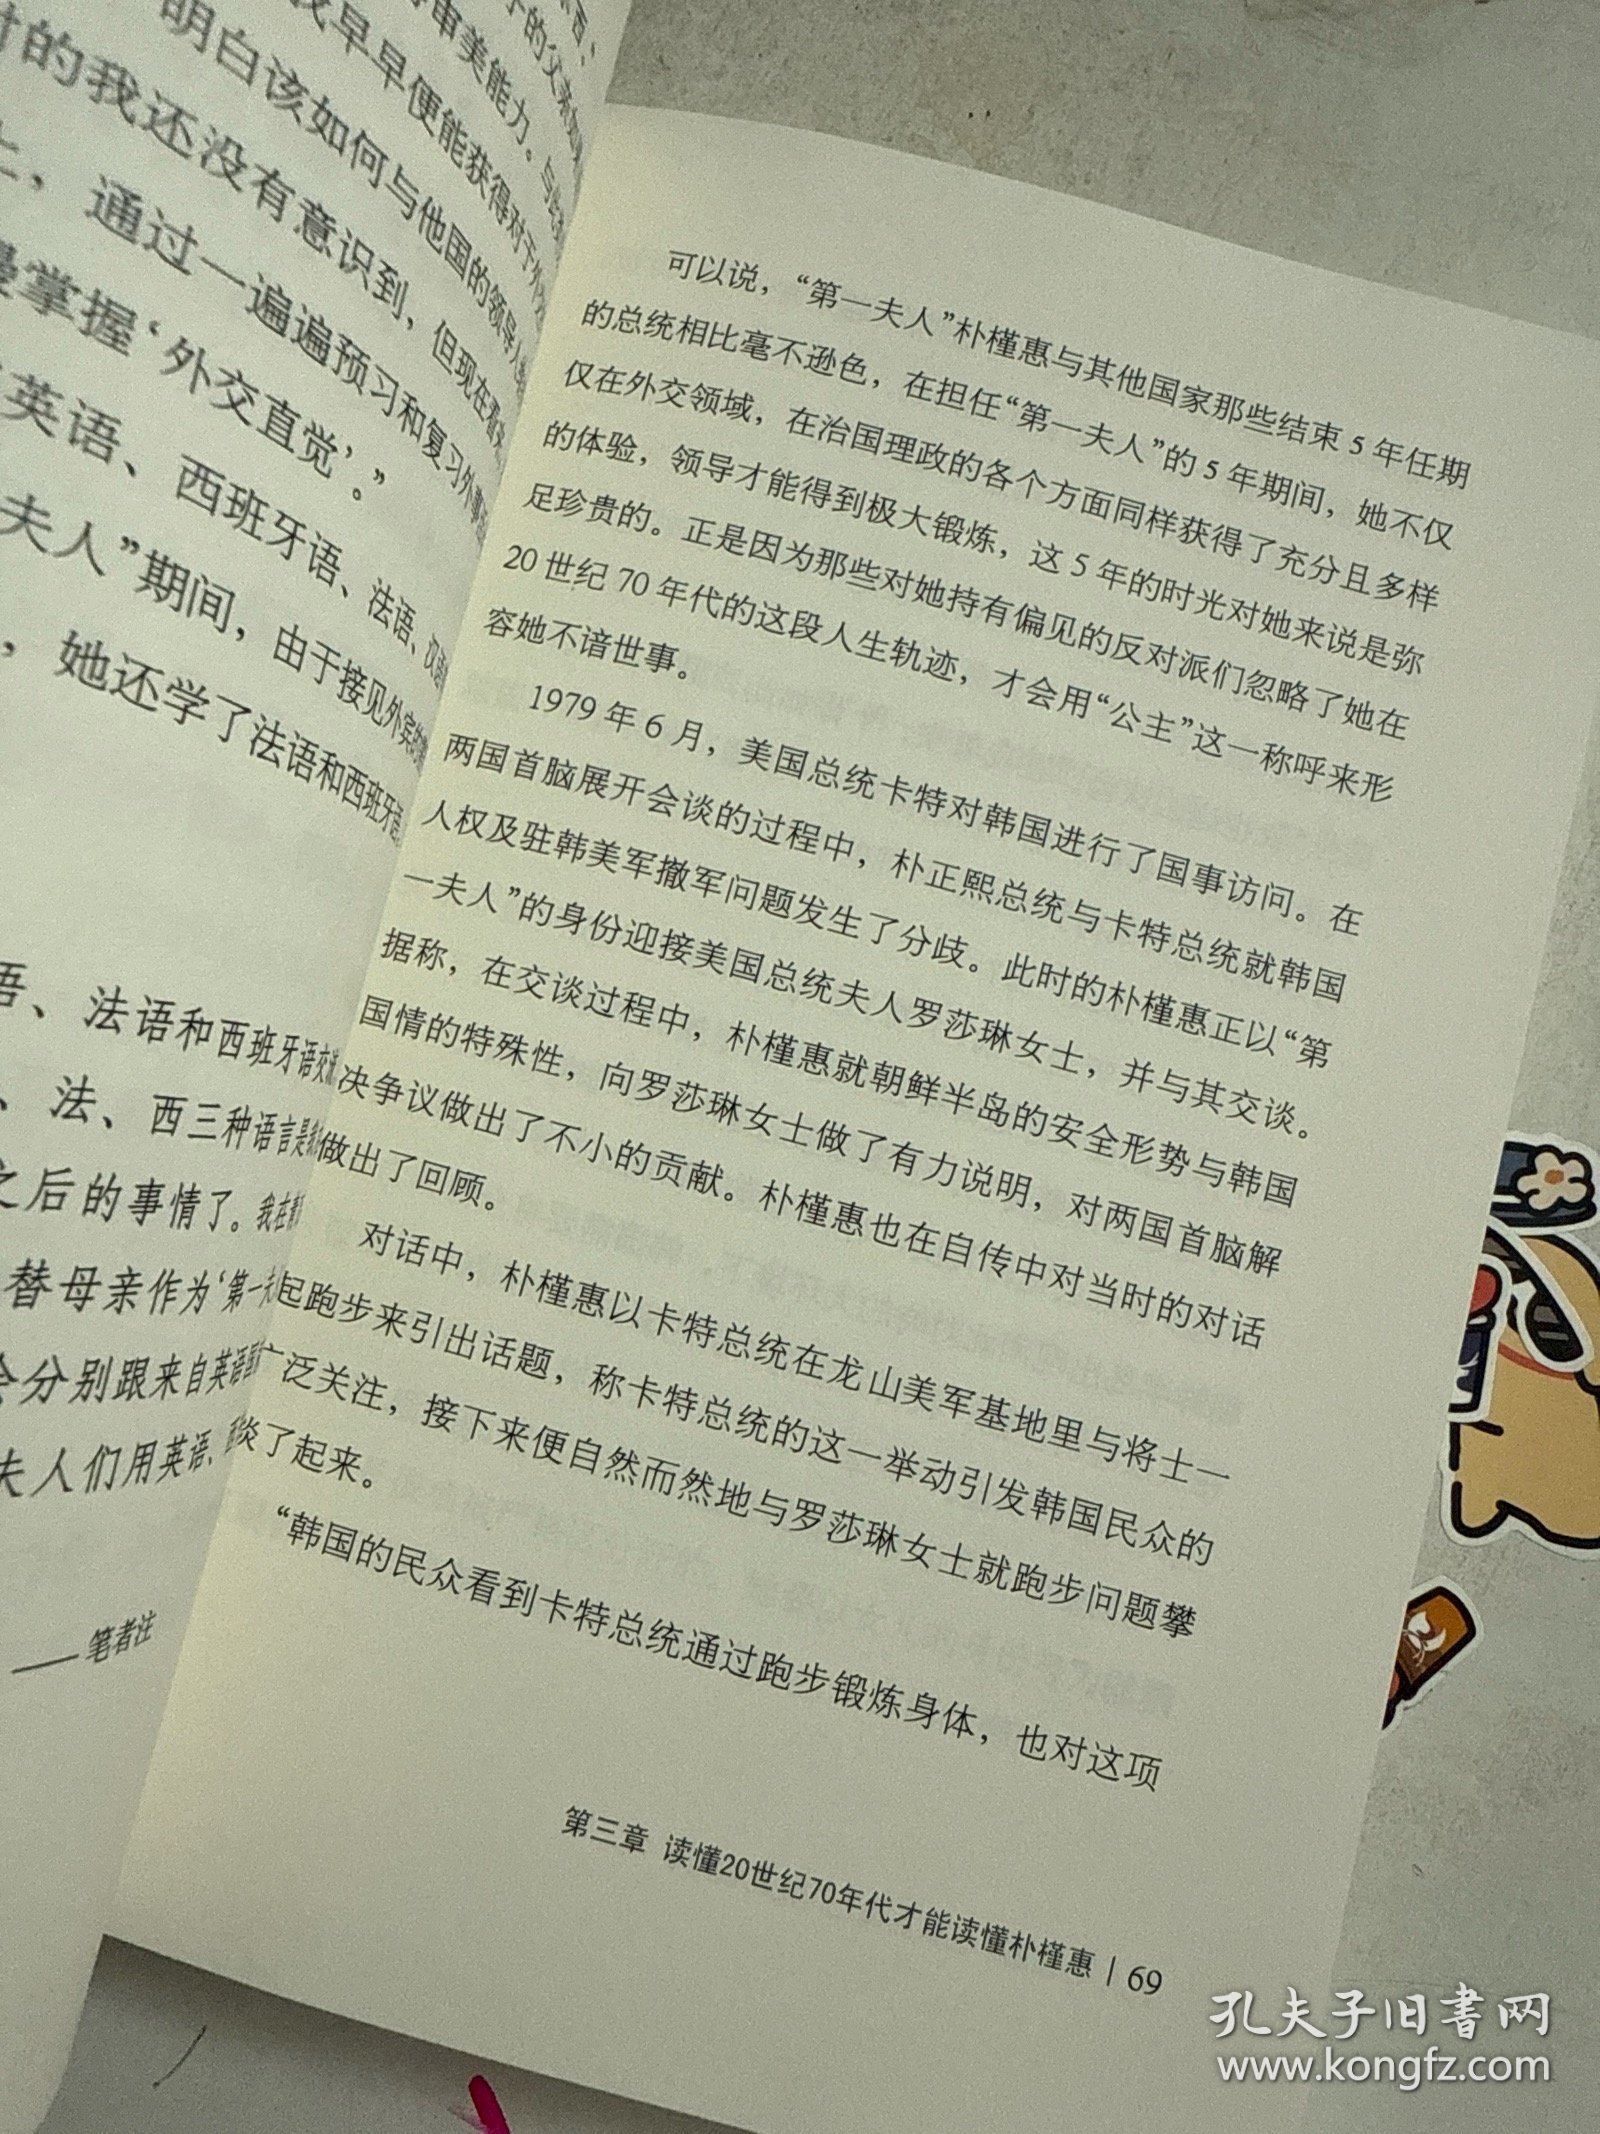 审美能力。与
我早早便能获得对于
明白该如何与他国的领导人
时的我还没有意识到，但现在看
上，通过一遍遍预习和复习外事
掌握‘外交直觉’。”
英语、西班牙语、法语、汉语
夫人”期间，由于接见外宾的
，她还学了法语和西班牙语
语、法语和西班牙语交
、法、西三种语言是
之后的事情了。我在
替母亲作为‘第一夫
会分别跟来自英语国
夫人们用英语、
——笔者注
可以说，“第一夫人”朴槿惠与其他国家那些结束5年任期
的总统相比毫不逊色，在担任“第一夫人”的5年期间，她不仅
仅在外交领域，在治国理政的各个方面同样获得了充分且多样
的体验，领导才能得到极大锻炼，这5年的时光对她来说是弥
足珍贵的。正是因为那些对她持有偏见的反对派们忽略了她在
20世纪70年代的这段人生轨迹，才会用“公主”这一称呼来形
容她不谙世事。
1979年6月，美国总统卡特对韩国进行了国事访问。在
两国首脑展开会谈的过程中，朴正熙总统与卡特总统就韩国
人权及驻韩美军撤军问题发生了分歧。此时的朴槿惠正以“第
一夫人”的身份迎接美国总统夫人罗莎琳女士，并与其交谈。
据称，在交谈过程中，朴槿惠就朝鲜半岛的安全形势与韩国
国情的特殊性，向罗莎琳女士做了有力说明，对两国首脑解
决争议做出了不小的贡献。朴槿惠也在自传中对当时的对话
做出了回顾。
对话中，朴槿惠以卡特总统在龙山美军基地里与将士一
起跑步来引出话题，称卡特总统的这一举动引发韩国民众的
广泛关注，接下来便自然而然地与罗莎琳女士就跑步问题攀
谈了起来。
“韩国的民众看到卡特总统通过跑步锻炼身体，也对这项
第三章 读懂20世纪70年代才能读懂朴槿惠 | 69
孔夫子旧书网
www.kongfz.com